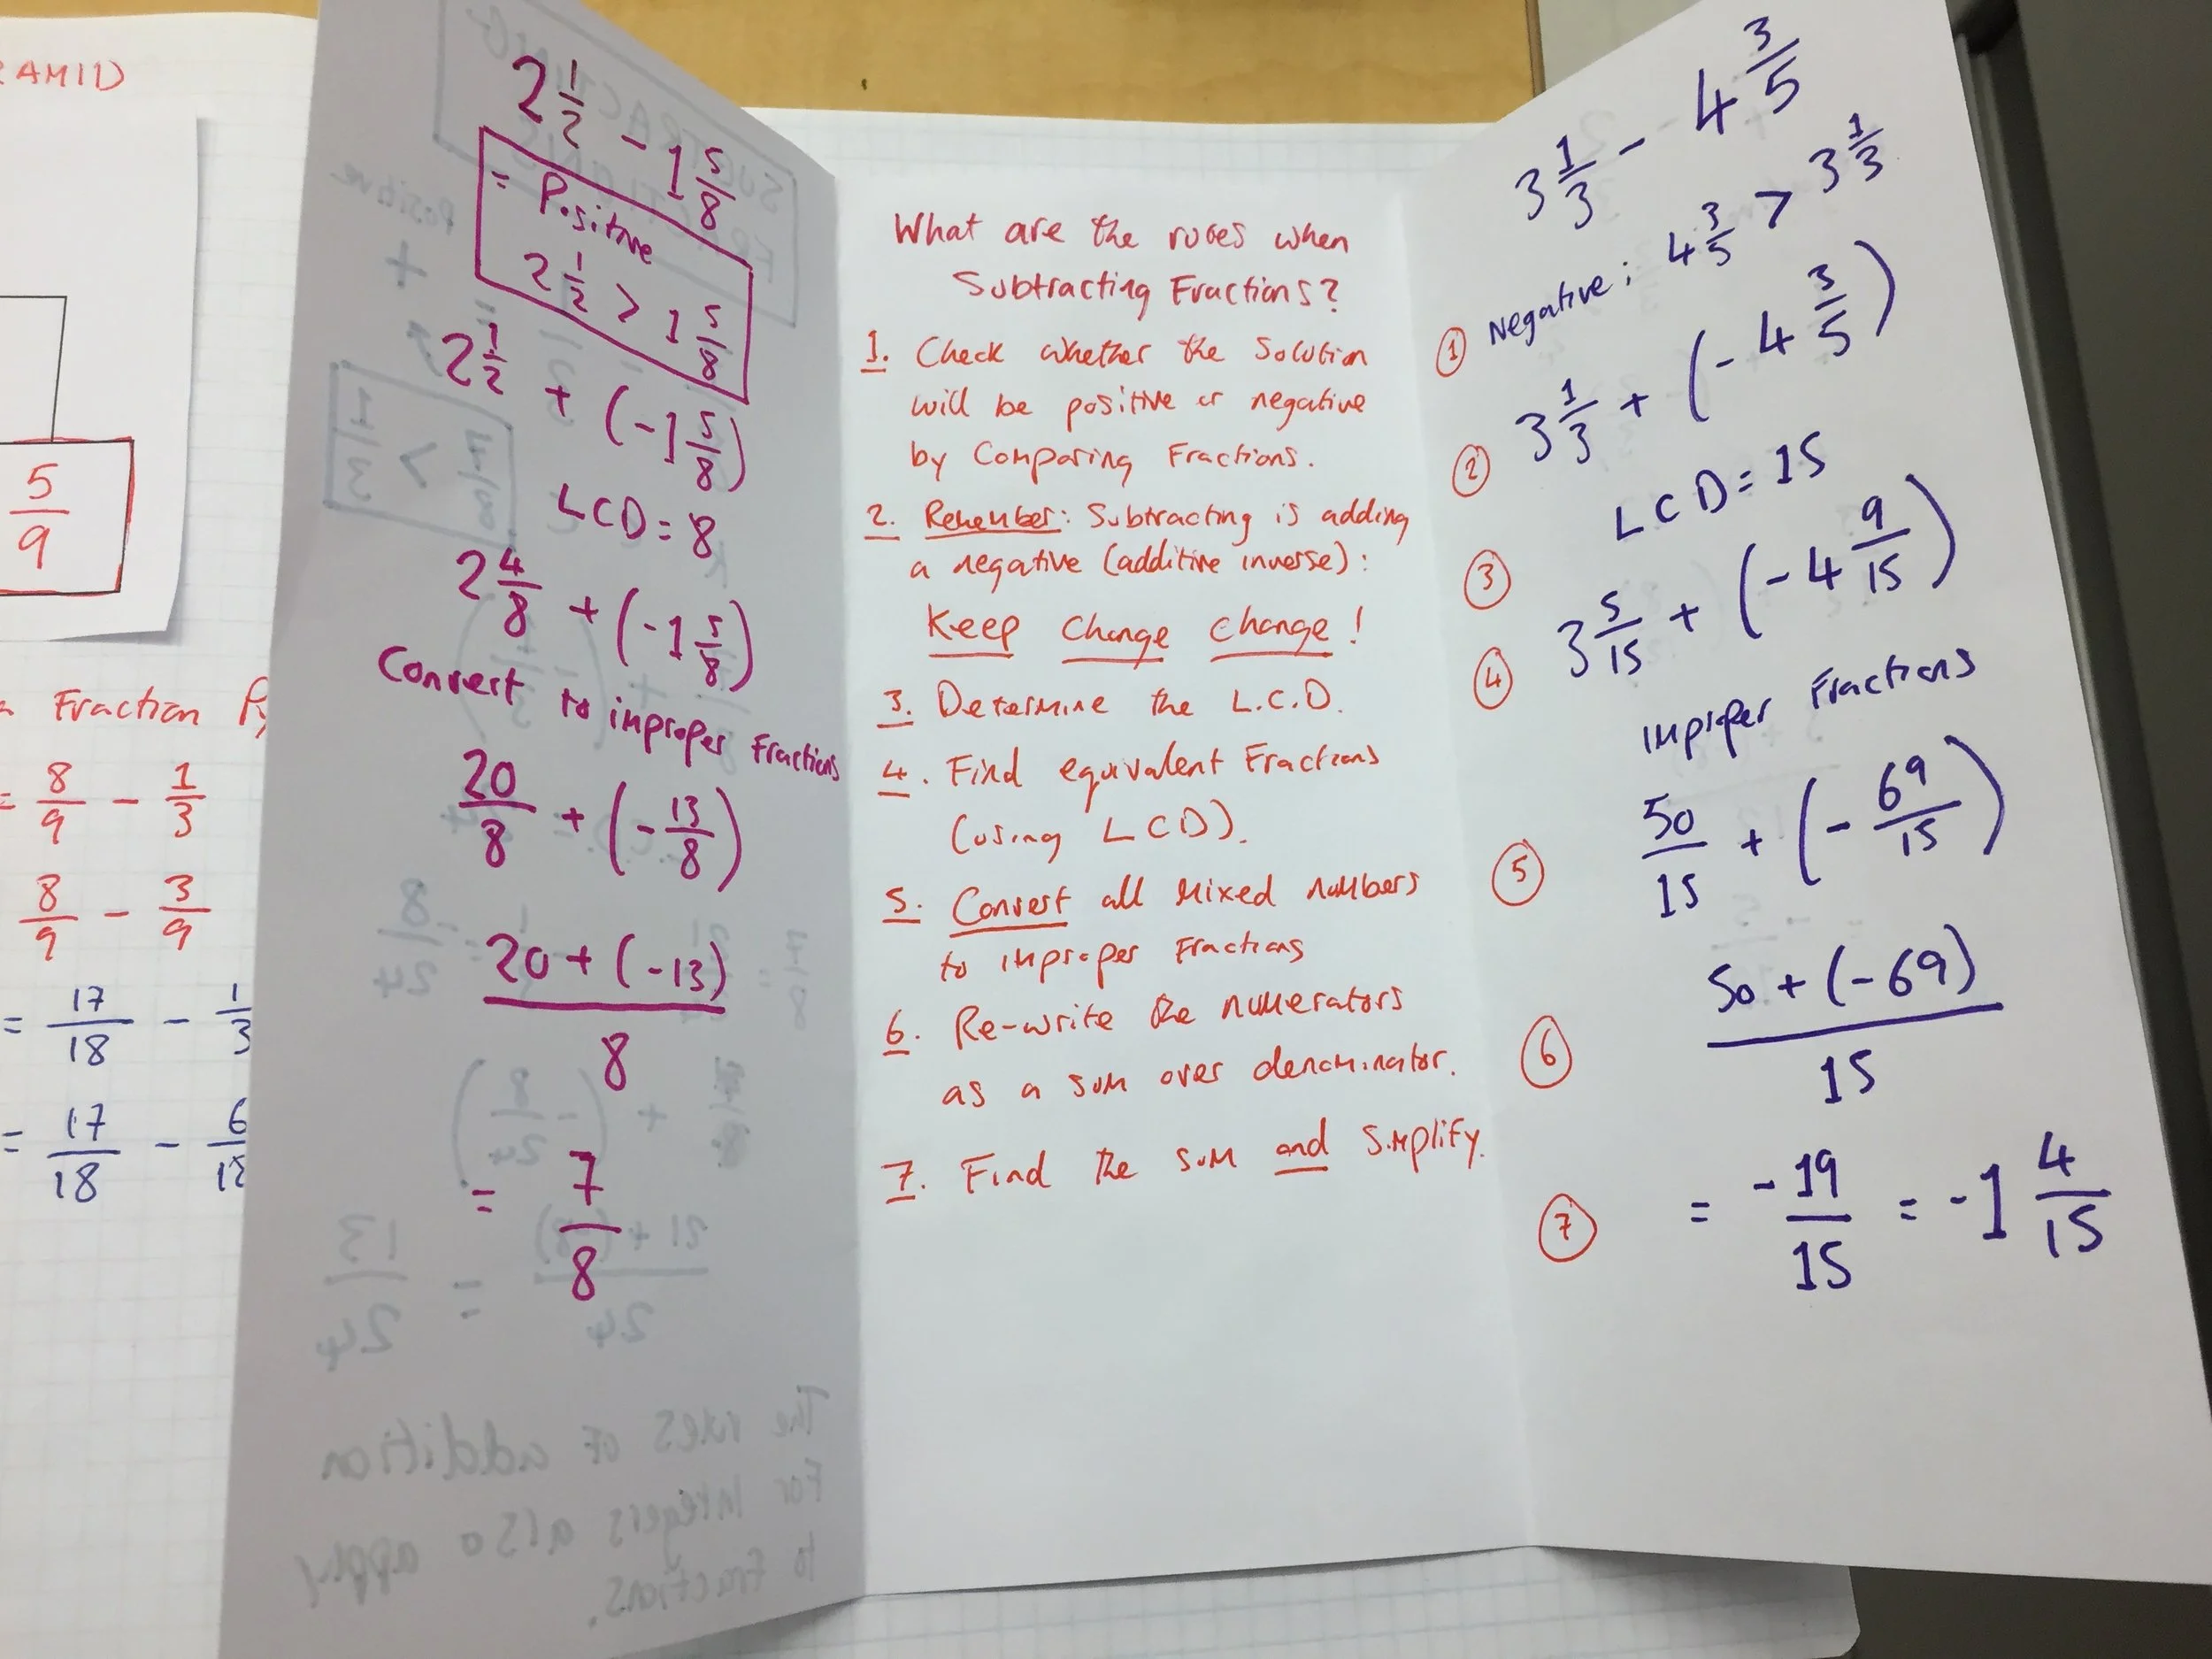 RAMID
5/9
Fraction
= 8/9 - 1/3
8/9 - 3/9
= 17/18 - 1/3
= 17/18 - 6/18
2 1/2 - 1 5/8
= Positive
2 1/2 > 1 5/8
2 1/2 + (-1 5/8)
LCD = 8
2 4/8 + (-1 5/8)
Convert to improper Fractions
20/8 + (-13/8)
20 + (-13)
8
= 7/8
What are the rules when
Subtracting Fractions?
1. Check whether the Solution
will be positive or negative
by Comparing Fractions.
2. Remember: Subtracting is adding
a negative (additive inverse):
Keep Change Change!
3. Determine the L.C.D.
4. Find equivalent Fractions
(using LCD).
5. Convert all mixed numbers
to improper Fractions
6. Re-write the numerators
as a sum over denominator.
7. Find the sum and Simplify.
3 1/3 - 4 3/5
① Negative; 4 3/5 > 3 1/3
② 3 1/3 + (-4 3/5)
③ LCD = 15
④ 3 5/15 + (-4 9/15)
improper Fractions
⑤ 50/15 + (-69/15)
⑥ 50 + (-69)
15
⑦ = -19/15 = -1 4/15
SUBTRACTING
FRACTIONS
Positive
8/24
21 + (-8)
24
= 13/24
The rules of addition
For Integers also apply
to Fractions.